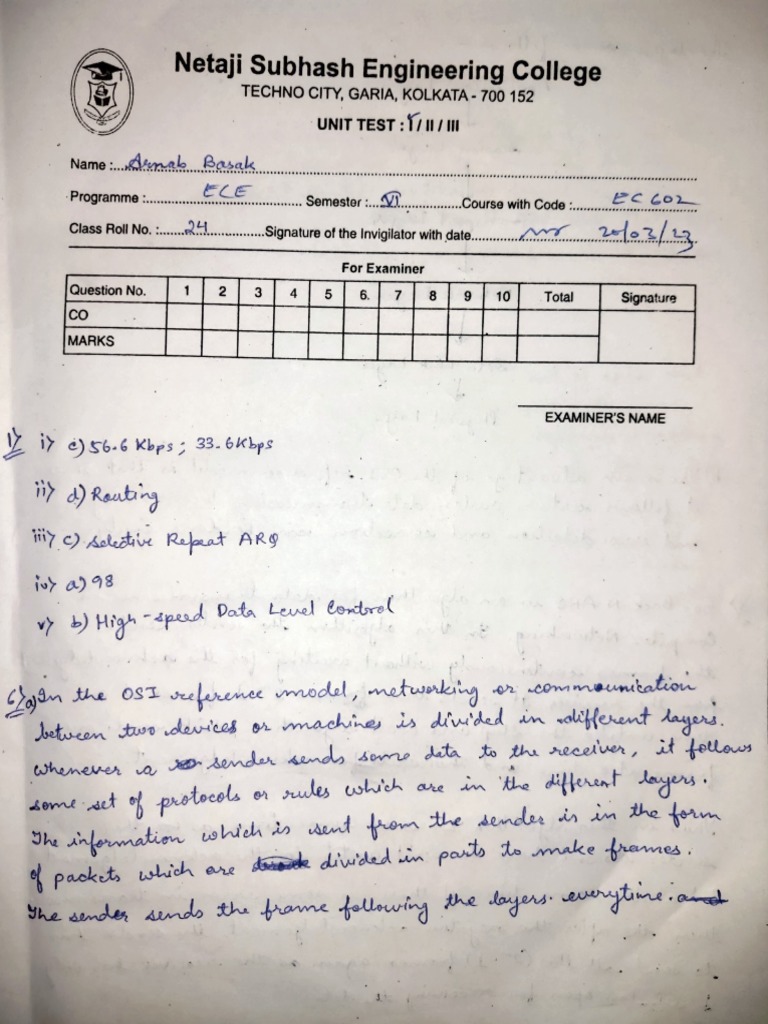 Netaji Subhash Engineering College
TECHNO CITY, GARIA, KOLKATA - 700 152
UNIT TEST : I / II / III
Name : Arnab Basak
Programme : ECE Semester : VI Course with Code : EC 602
Class Roll No. : 24 Signature of the Invigilator with date 20/03/23
For Examiner
Question No. 1 2 3 4 5 6. 7 8 9 10 Total Signature
CO
MARKS
EXAMINER'S NAME
1> i> c) 56.6 Kbps ; 33.6 Kbps
ii> d) Routing
iii> c) Selective Repeat ARQ
iv> a) 98
v> b) High-speed Data Level Control
6> a) In the OSI reference model, networking or communication
between two devices or machines is divided in different layers.
whenever a sender sends some data to the receiver, it follows
some set of protocols or rules which are in the different layers.
The information which is sent from the sender is in the form
of packets which are divided in parts to make frames.
The sender sends the frame following the layers. everytime. and